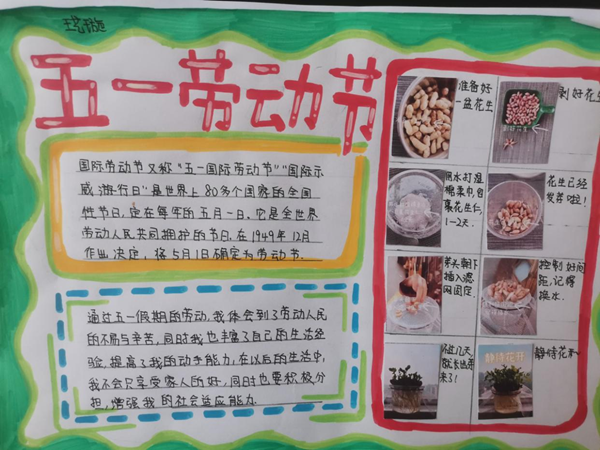 五一劳动节
国际劳动节又称“五一国际劳动节”“国际示
威游行日”是世界上80多个国家的全国
性节日,定在每年的五月一日,它是全世界
劳动人民共同拥护的节日,在1949年12月
作出决定,将5月1日确定为劳动节.
通过五一假期的劳动,我体会到了劳动人民
的不易与辛苦,同时我也丰富了自己的生活经
验,提高了我的动手能力,在以后的生活中,
我不会只享受家人的好,同时也要积极分
担,增强我的社会适应能力.
准备好
一盆花生
剥好花生
用水打湿
棉柔巾,包
裹花生仁,
1-2天.
花生已经
发芽啦!
芽头朝下
插入滤
网固定.
控制好间
距,记得
换水.
几天,
就长出芽
来了!
静待花开
静待花开